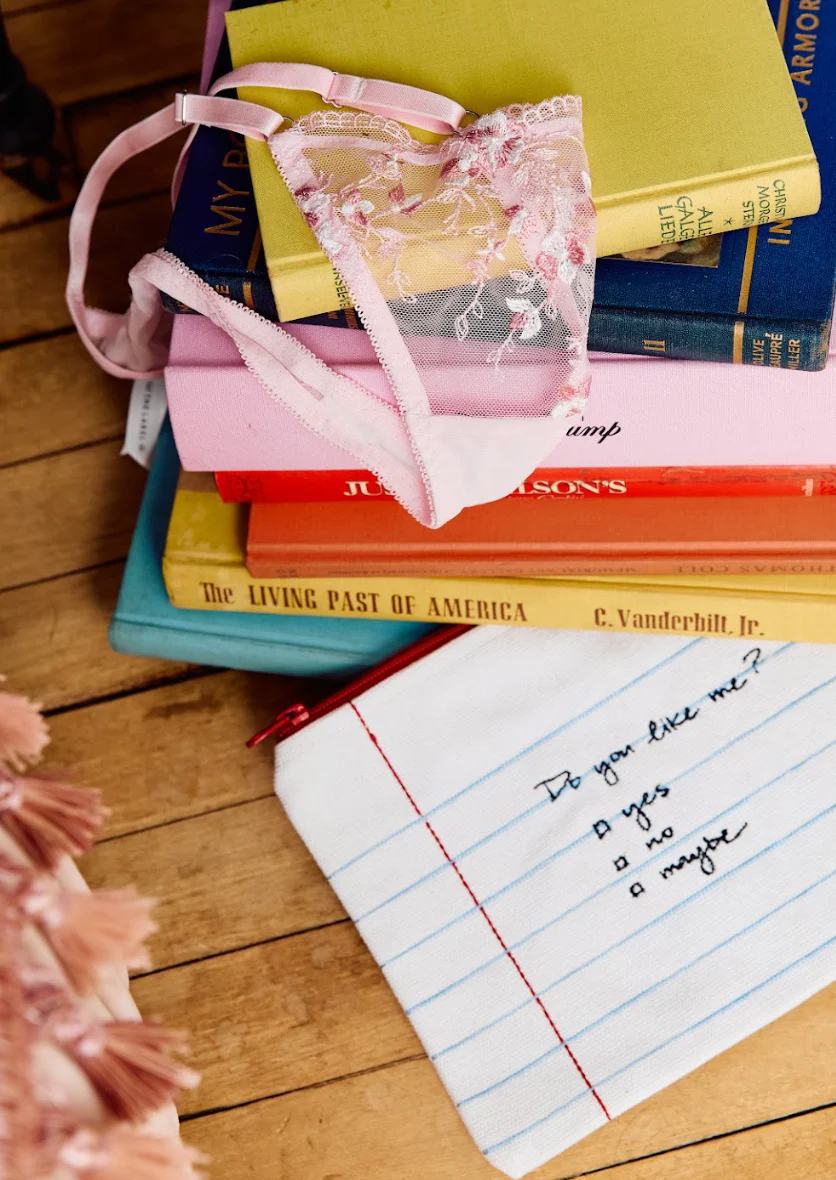 MY
ARMOR
CHRIST
MORG
STER
ALLE
GALGE
LIEDE
IN
II
OLIVE
BEAUPRÉ
MILLER
ump
JU LSON'S
THOMAS COLE
The LIVING PAST OF AMERICA C. Vanderbilt, Jr.
Do you like me?
yes
no
maybe